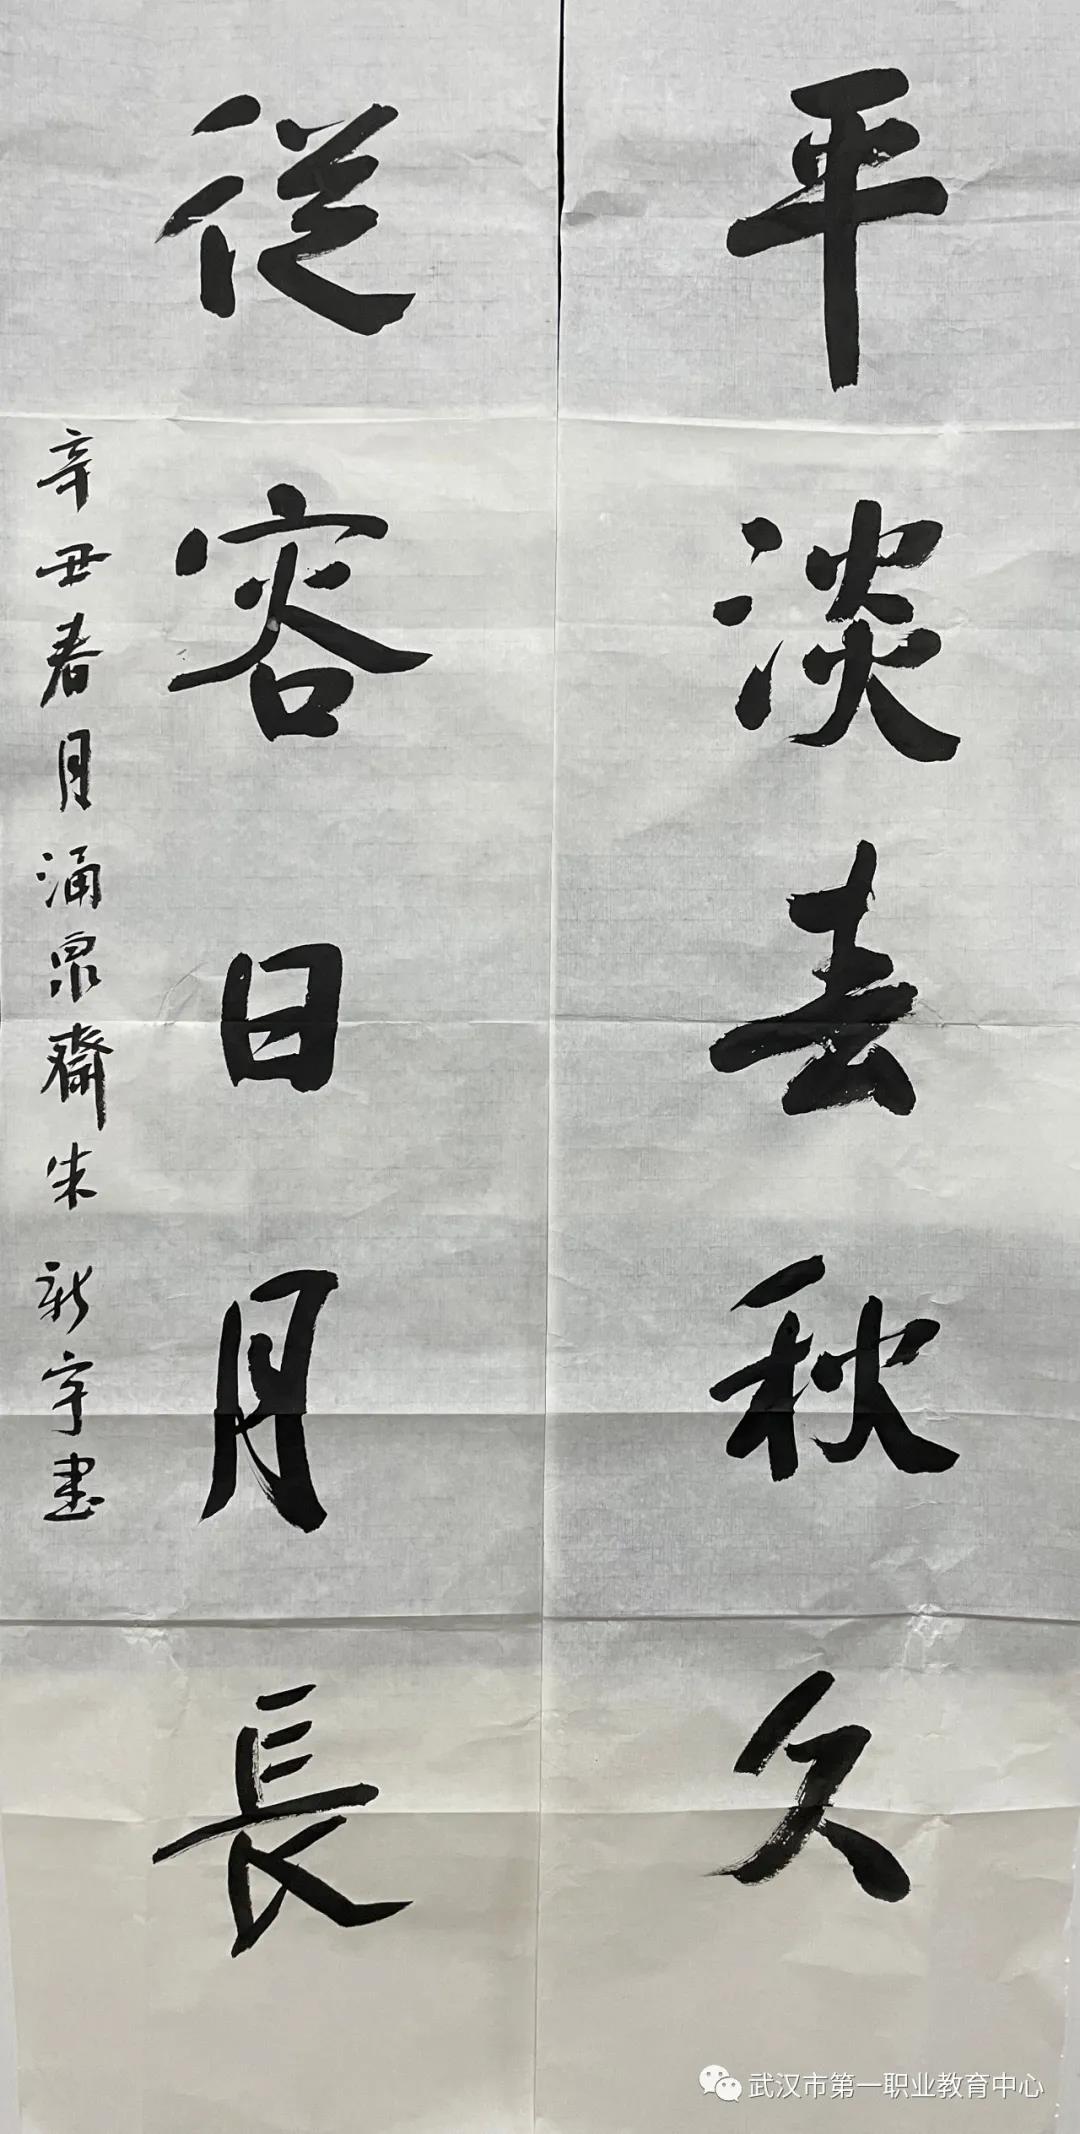 平淡春秋久
從容日月長
辛丑春月涌泉齋朱新宇書
武汉市第一职业教育中心